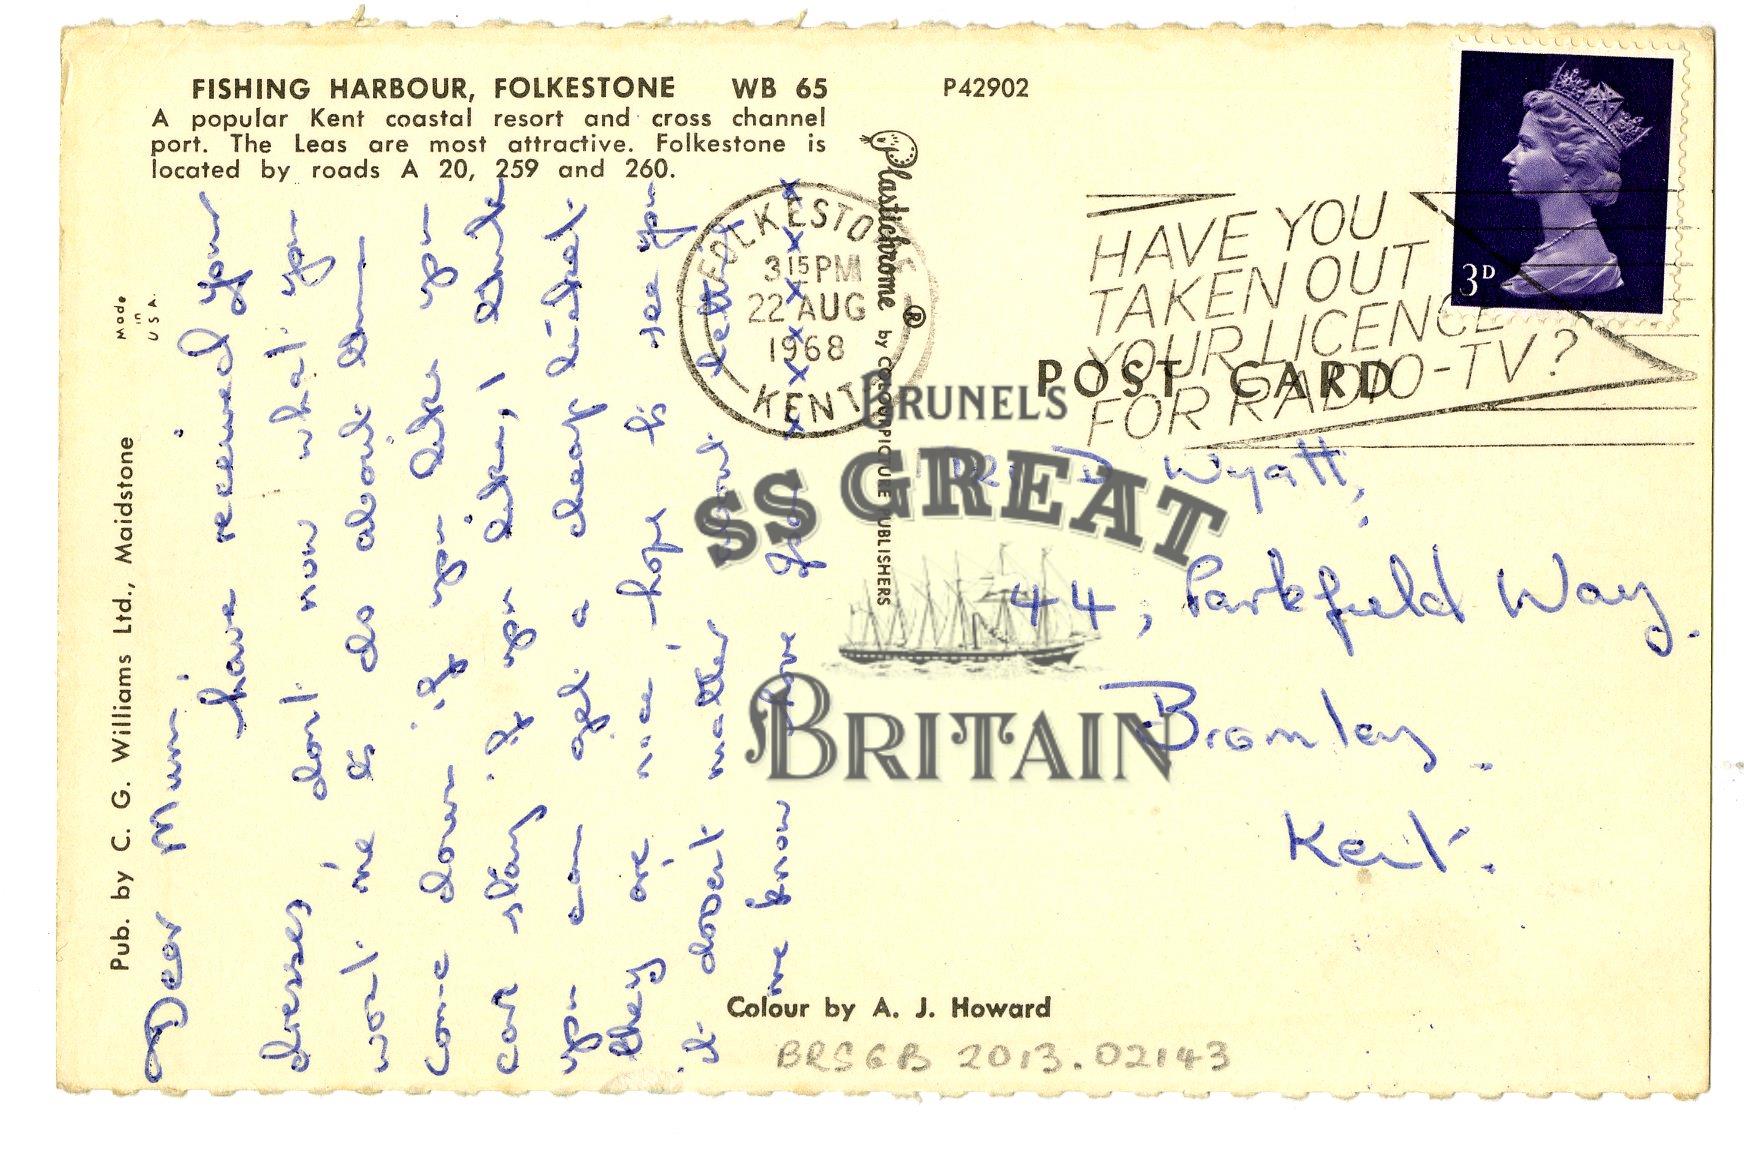 FISHING HARBOUR, FOLKESTONE WB 65
A popular Kent coastal resort and cross channel
port. The Leas are most attractive. Folkestone is
located by roads A 20, 259 and 260.
P42902
Made
in
U S A.
Pub. by C. G. Williams Ltd., Maidstone
Plastichrome ® by COLOURPICTURE PUBLISHERS
FOLKESTONE
3 15 PM
22 AUG
1968
KENT
HAVE YOU
TAKEN OUT
YOUR LICENCE
FOR RADIO-TV?
3D
POST CARD
Dear Mum,
have received your
dresses dont now what you
want me to do about them
come down if you like you
can stay if you like, I think
you can get a cheap ticket
they are nice, hope to see you
it dosent matter about letting
me know love
x x x x x x
D Wyatt,
44, Parkfield Way.
Bromley.
Kent.
BRUNEL'S
SS GREAT
BRITAIN
Colour by A. J. Howard
BRSGB 2013.02143